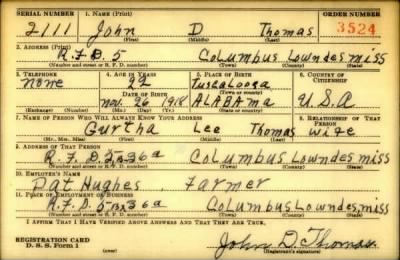 SERIAL NUMBER 1. NAME (Print) ORDER NUMBER
2111 John D Thomas 3524
(First) (Middle) (Last)
2. ADDRESS (Print)
R.F.D. 5 Columbus Lowndes miss
(Number and street or R. F. D. number) (Town) (County) (State)
3. TELEPHONE 4. AGE IN YEARS 5. PLACE OF BIRTH 6. COUNTRY OF CITIZENSHIP
none 22 Tuscaloosa
DATE OF BIRTH (Town or county)
Nov. 26 1918 ALABAMA U.S.A
(Exchange) (Number) (Mo.) (Day) (Yr.) (State or country)
7. NAME OF PERSON WHO WILL ALWAYS KNOW YOUR ADDRESS 8. RELATIONSHIP OF THAT PERSON
Gurtha Lee Thomas wife
(Mr., Mrs., Miss) (First) (Middle) (Last)
9. ADDRESS OF THAT PERSON
R.F.D. 36a Columbus Lowndes miss
(Number and street or R. F. D. number) (Town) (County) (State)
10. EMPLOYER'S NAME
Pat Hughes, Farmer
11. PLACE OF EMPLOYMENT OR BUSINESS
R.F.D. 5 Bx 36a Columbus Lowndes, miss
(Number and street or R. F. D. number) (Town) (County) (State)
I AFFIRM THAT I HAVE VERIFIED ABOVE ANSWERS AND THAT THEY ARE TRUE.
REGISTRATION CARD John D. Thomas
D. S. S. Form 1 (Registrant's signature)